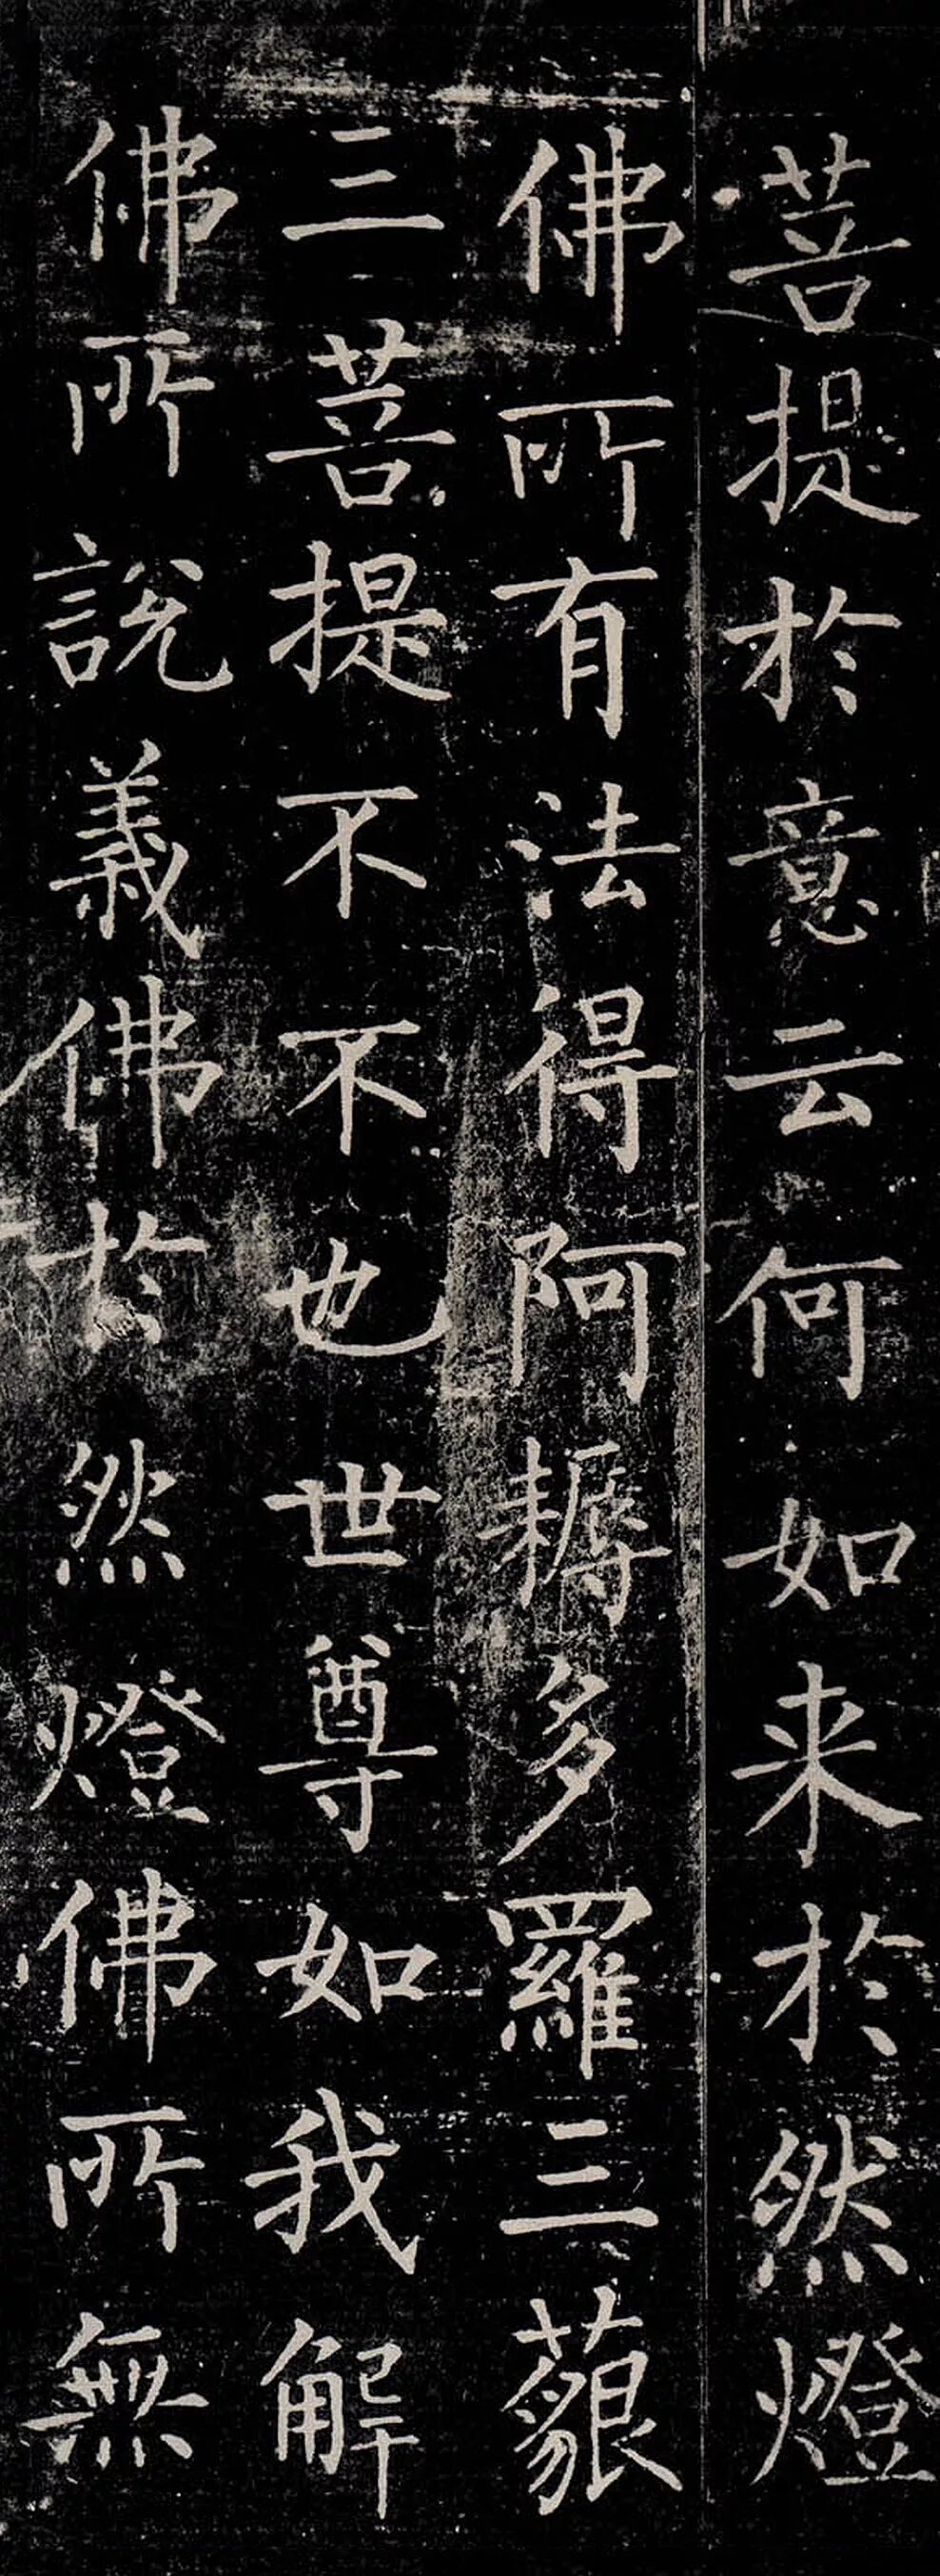 菩提於意云何如来於然燈
佛所有法得阿耨多羅三藐
三菩提不不也世尊如我解
佛所說義佛於然燈佛所無